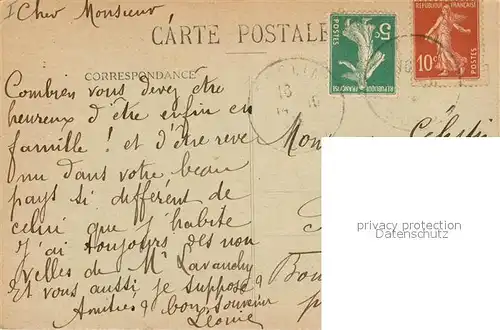 Cher Monsieur
CARTE POSTALE
CORRESPONDANCE
Combien vous devez être
heureux d'être enfin en
famille ! et d'être reve
nu dans votre beau
pays si différent de
celui que j'habite
J'ai toujours des nou
velles de Mr Lavanchy
Et vous aussi je suppose ?
Amitiés & bon souvenir
Léonie
Mon
Célesti
Bon
5c
REPUBLIQUE FRANÇAISE
POSTES
REPUBLIQUE FRANÇAISE
10c
POSTES
privacy protection
Datenschutz